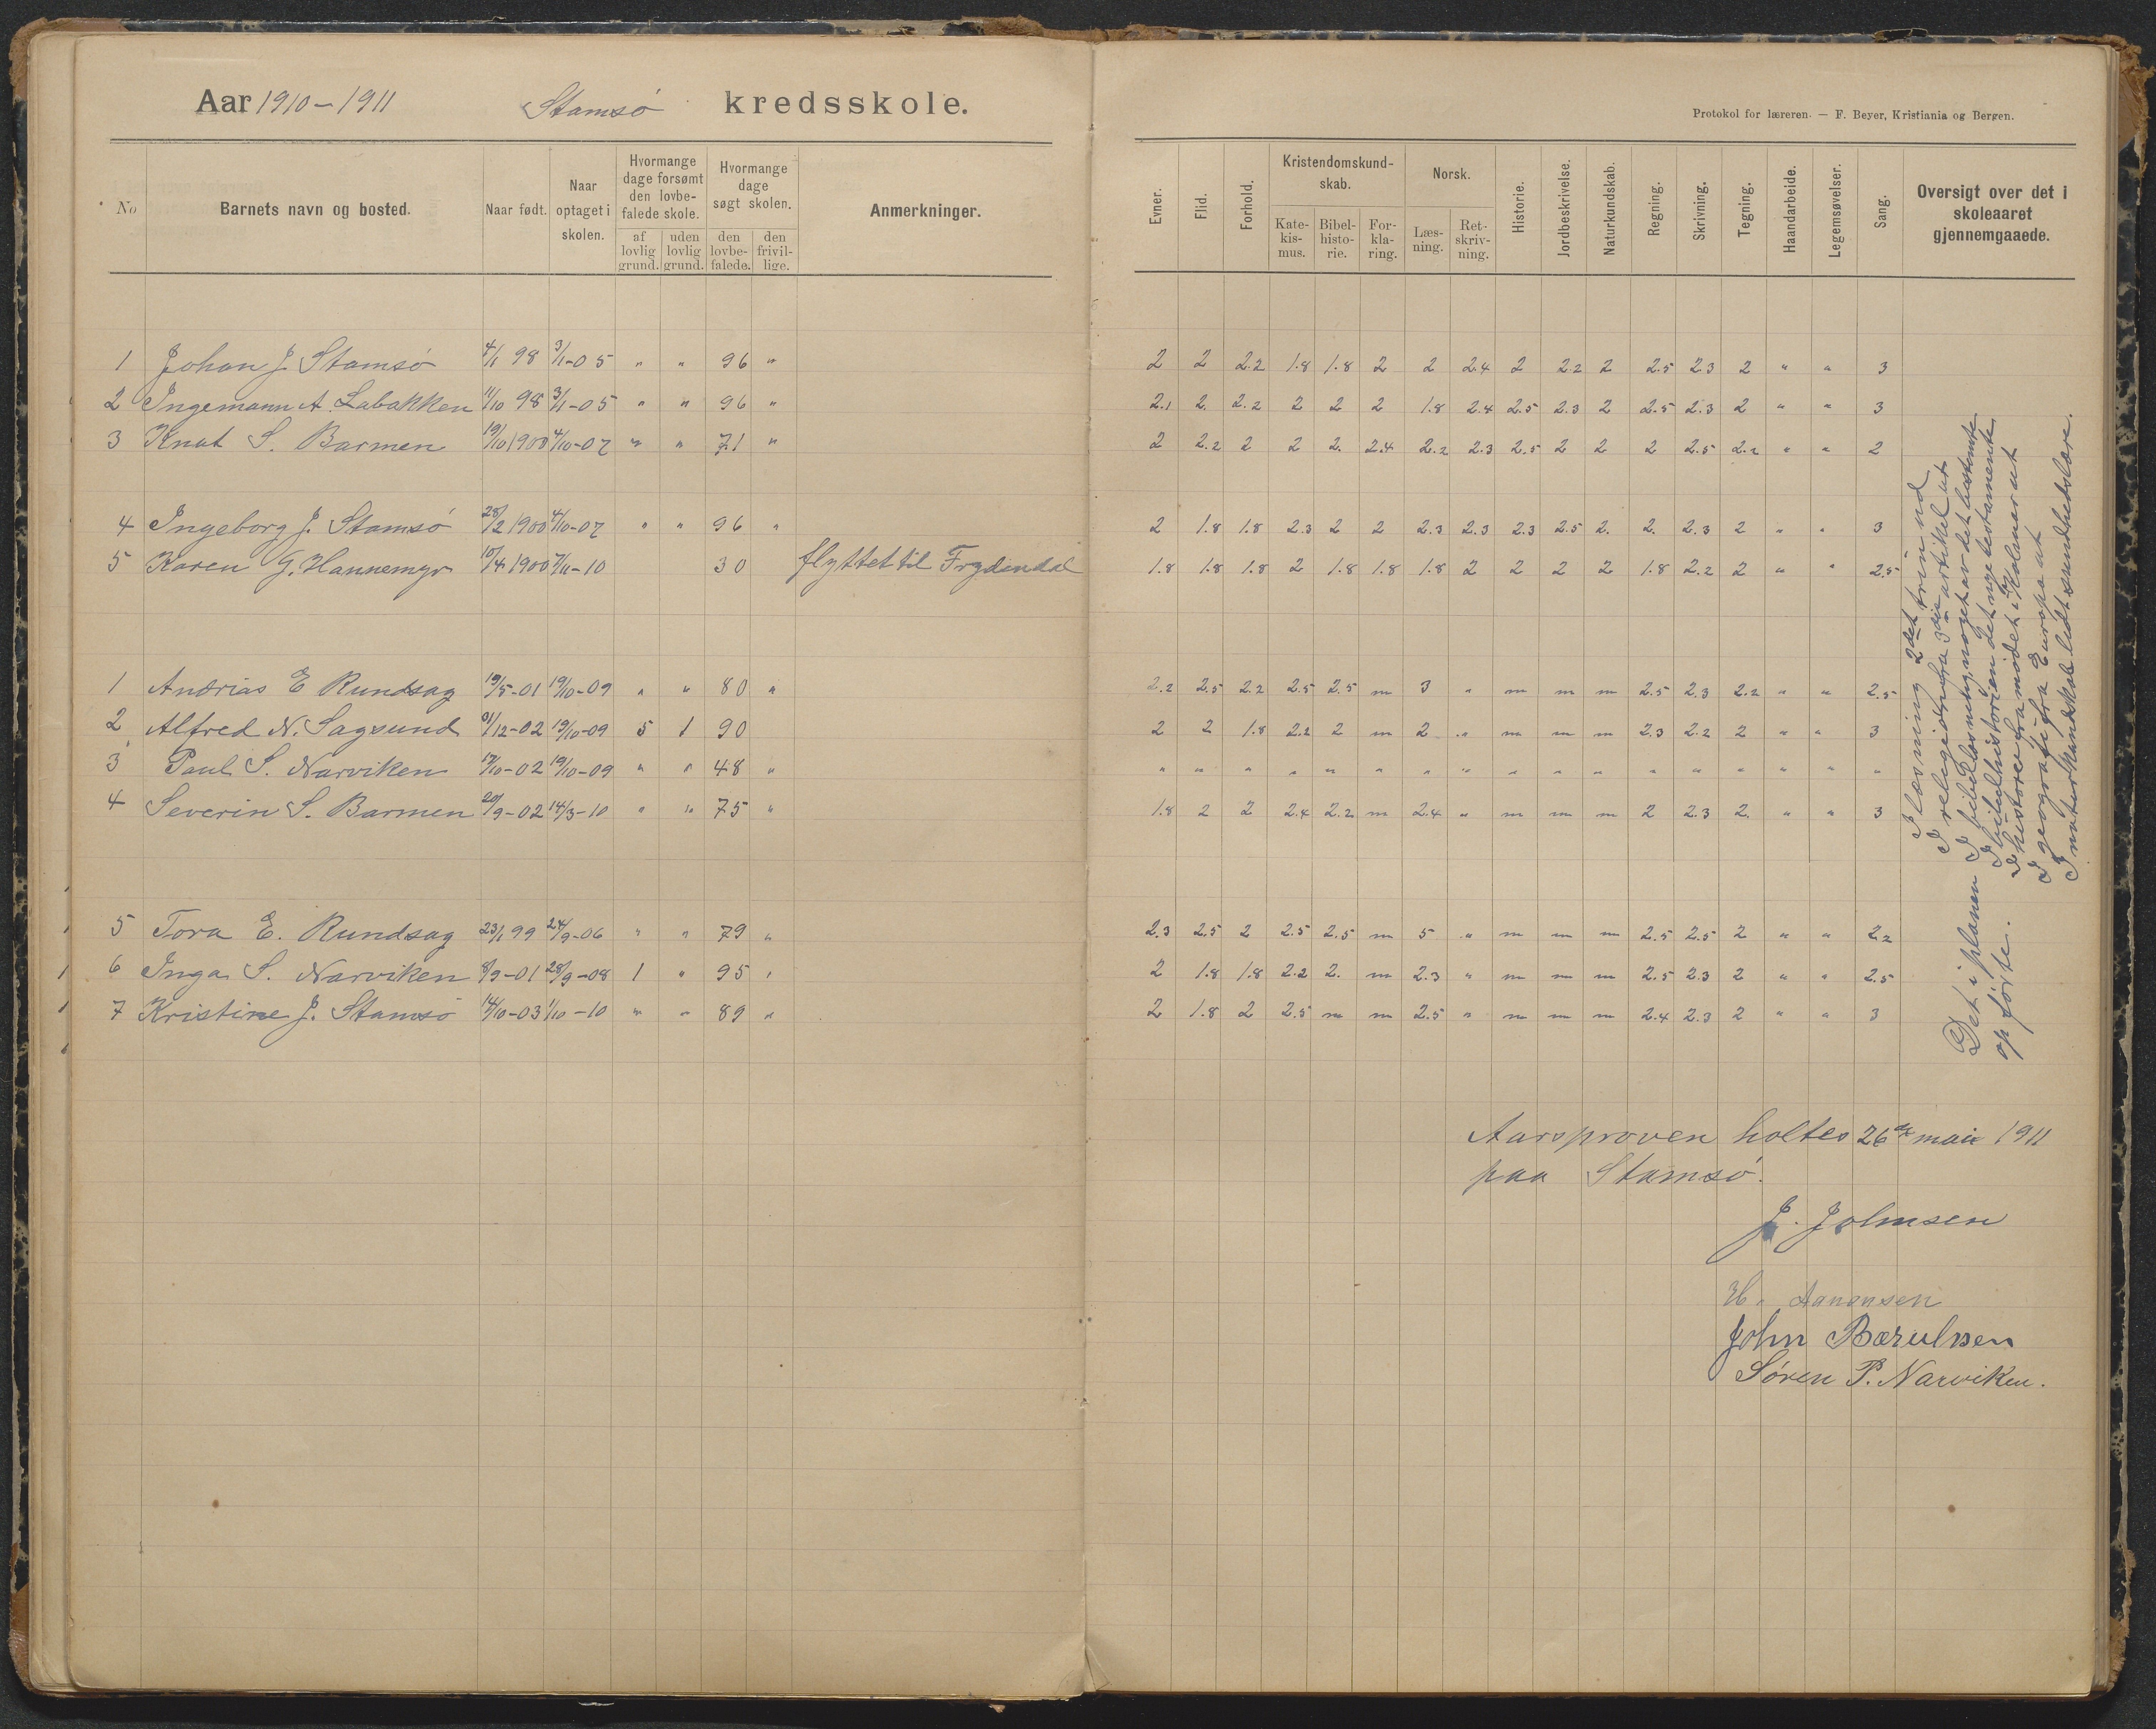 Aar 1910-1911 Stamsø kredsskole.
No
Barnets navn og bosted.
Naar født.
Naar optaget i skolen.
Hvormange dage forsømt den lovbefalede skole.
af lovlig grund.
uden lovlig grund.
Hvormange dage søgt skolen.
den lovbefalede.
den frivillige.
Anmerkninger.
1 Johan J Stamsø 4/1 98 3/1-05 " " 96 "
2 Ingemann A. Labakken 11/10 98 3/1-05 " " 96 "
3 Knut S. Barmen 19/10 1900 4/10-07 " " 71 "
4 Ingeborg J. Stamsø 28/2 1900 4/10-07 " " 96 "
5 Karen G. Hannemyr 10/4 1900 7/11-10 30 flyttet til Frydendal
1 Andrias E Rundsag 19/5-01 19/10-09 " " 80 "
2 Alfred N. Sagsund 31/12-02 19/10-09 5 1 90
3 Paul S. Narviken 17/10-02 19/10-09 " " 48 "
4 Severin S. Barmen 20/9-02 14/3-10 " " 75 "
5 Tora E. Rundsag 23/1 99 24/9-06 " " 79 "
6 Inga S. Narviken 8/9-01 28/9-08 1 " 95 "
7 Kristine J. Stamsø 14/10-03 1/10-10 " " 89 "
Protokol for læreren. — F. Beyer, Kristiania og Bergen.
Evner.
Flid.
Forhold.
Kristendomskundskab.
Katekismus.
Bibelhistorie.
Forklaring.
Norsk.
Læsning.
Retskrivning.
Historie.
Jordbeskrivelse.
Naturkundskab.
Regning.
Skrivning.
Tegning.
Haandarbeide.
Legemsøvelser.
Sang.
Oversigt over det i skoleaaret gjennemgaaede.
2 2 2.2 1.8 1.8 2 2 2.4 2 2.2 2 2.5 2.3 2 " " 3
2.1 2. 2.2 2 2 2 1.8 2.4 2.5 2.3 2 2.5 2.3 2 " " 3
2 2.2 2 2 2. 2.4 2.2 2.3 2.5 2 2 2 2.5 2.2 " " 2
2 1.8 1.8 2.3 2 2 2.3 2.3 2.3 2.5 2. 2. 2.3 2 " " 3
1.8 1.8 1.8 2 1.8 1.8 1.8 2 2 2 2 1.8 2.2 2 " " 2.5
2.2 2.5 2.2 2.5 2.5 m 3 " m m m 2.5 2.3 2.2 " " 2.5
2 2 1.8 2.2 2 m 2 " m m m 2.3 2.2 2 " " 3
" " " " " " " " " " " " " " " " "
1.8 2 2 2.4 2.2 m 2.4 " m m m 2 2.3 2. " " 3
2.3 2.5 2 2.5 2.5 m 5 " m m m 2.5 2.5 2 " " 2.2
2 1.8 1.8 2.2 2. m 2.3 " m m m 2.5 2.3 2 " " 2.5
2 1.8 2 2.5 m m 2.5 " m m m 2.4 2.3 2 " " 3
I læsning 2det trin ud
I religion fra 3die artikel ut
I bibellæsning noget av det bestemte
I bibelhistorien det nye testamente
I historie fra mødet i Kalmar ut
I geografi fra Europa ut
I naturkundskab lidt sundhedslære.
Det i planen
opførte.
Aarsprøven holtes 26de mai 1911
paa Stamsø.
J. Johnsen
H. Aanonsen
John Bærulsen
Søren P. Narviken.